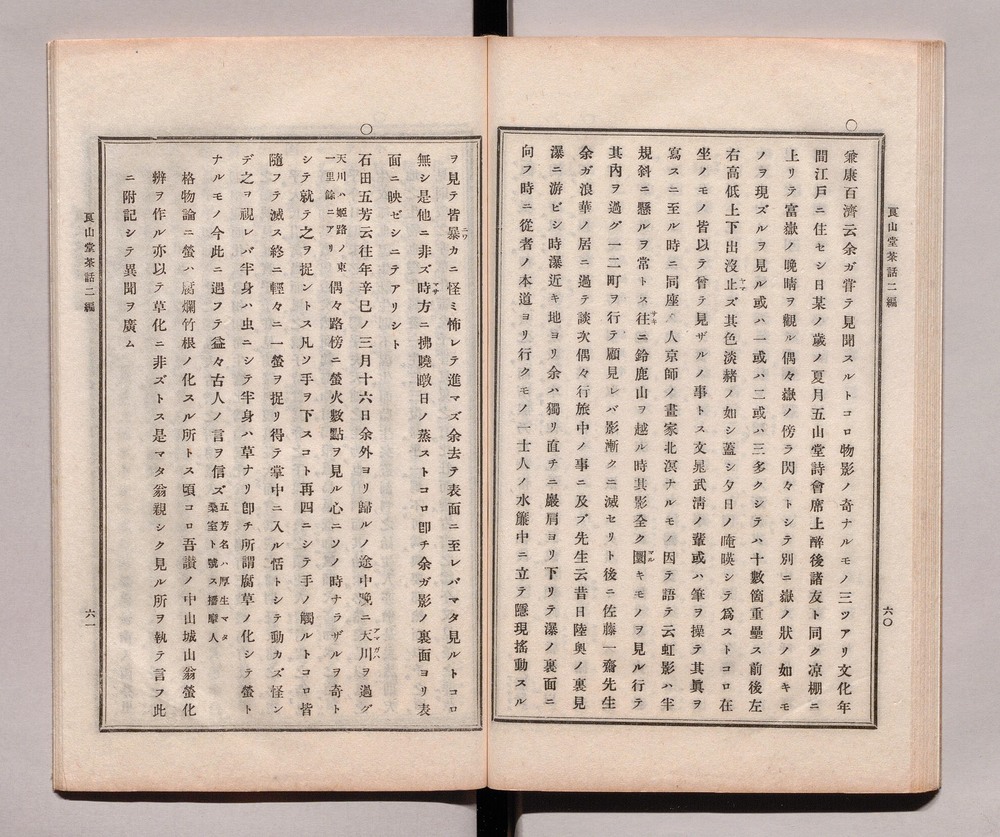 〇
兼康百濟云余ガ嘗テ見聞スルトコロ物影ノ奇ナルモノ三ツアリ文化年
間江戸ニ住セシ日某ノ歳ノ夏月五山堂詩會席上醉後諸友ト同ク凉棚ニ
上リテ富嶽ノ晩晴ヲ觀ル偶々嶽ノ傍ラ閃々トシテ別ニ嶽ノ狀ノ如キモ
ノヲ現ズルヲ見ル或ハ一或ハ二或ハ三多クシテハ十數箇重疊ス前後左
右高低上下出沒止ズ其色淡赭ノ如シ蓋シ夕日ノ唵暎シテ爲ストコロ在
坐ノモノ皆以テ曾テ見ザルノ事トス文晁武淸ノ輩或ハ筆ヲ操テ其眞ヲ
寫スニ至ル時ニ同座ノ人京師ノ畫家北溟ナルモノ因テ語テ云虹影ハ半
規斜ニ懸ルヲ常トス往ニ鈴鹿山ヲ越ル時其影全ク圜キモノヲ見ル行テ
其內ヲ過グ一二町ヲ行テ顧見レバ影漸クニ滅セリト後ニ佐藤一齋先生
余ガ浪華ノ居ニ過テ談次偶々行旅中ノ事ニ及ブ先生云昔日陸奧ノ裏見
瀑ニ游ビシ時瀑近キ地ヨリ余ハ獨リ直チニ巖肩ヨリ下リテ瀑ノ裏面ニ
向フ時ニ從者ノ本道ヨリ行クモノ一士人ノ水簾中ニ立テ隱現搖動スル
六〇
ヲ見テ皆暴カニ怪ミ怖レテ進マズ余去テ表面ニ至レバマタ見ルトコロ
無シ是他ニ非ズ時方ニ拂曉暾日ノ蒸ストコロ卽チ余ガ影ノ裏面ヨリ表
面ニ映ゼシニテアリシト
〇
石田五芳云往年辛巳ノ三月十六日余外ヨリ歸ルノ途中晩ニ天川ヲ過グ
天川ハ姬路ノ東一里餘ニアリ偶々路傍ニ螢火數點ヲ見ル心ニソノ時ナラザルヲ奇ト
シテ就テ之ヲ捉ントス凡ソ手ヲ下スコト再四ニシテ手ノ觸ルトコロ皆
隨フテ滅ス終ニ輕々ニ一螢ヲ捉リ得テ掌中ニ入ル恬トシテ動カズ怪ン
デ之ヲ視レバ半身ハ虫ニシテ半身ハ草ナリ卽チ所謂腐草ノ化シテ螢ト
ナルモノ今此ニ遇フテ益々古人ノ言ヲ信ズ五芳名ハ厚生マタ桑室ト號ス播磨人
格物論ニ螢ハ腐爛竹根ノ化スル所トス頃コロ吾讚ノ中山城山翁螢化
辨ヲ作ル亦以テ草化ニ非ズトス是マタ翁親シク見ル所ヲ執テ言フ此
ニ附記シテ異聞ヲ廣ム
山堂茶話二編
六一